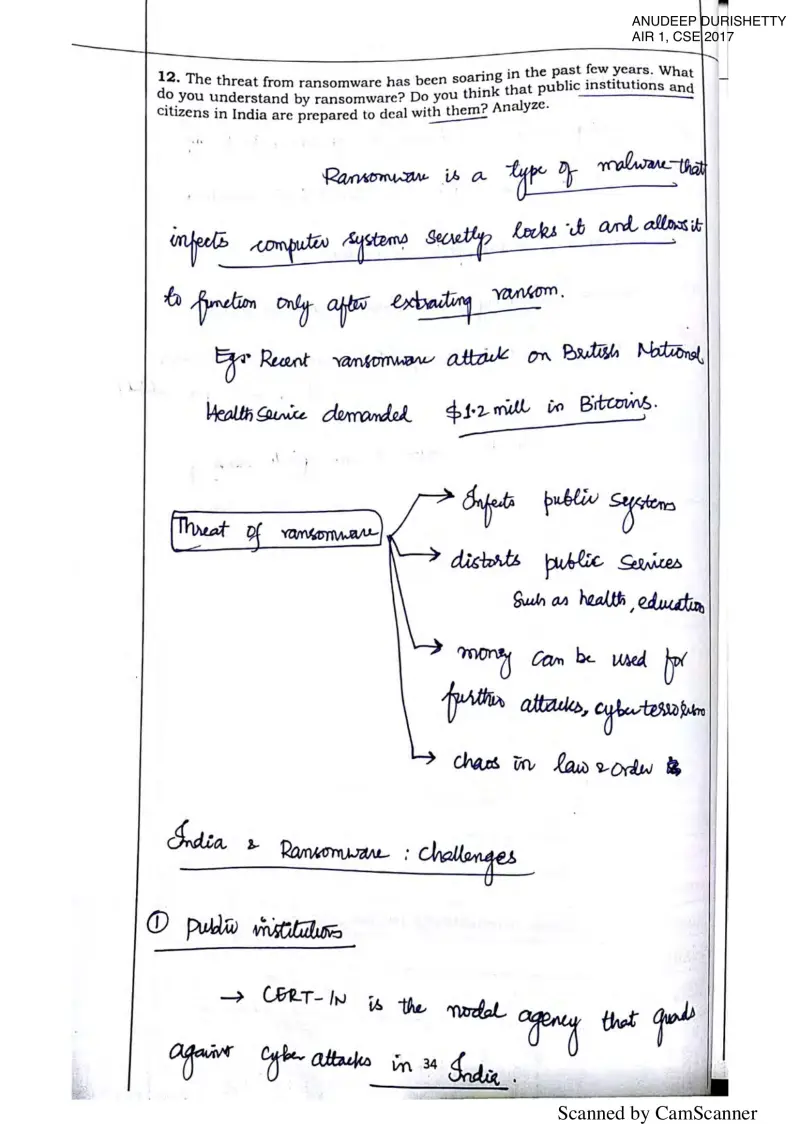 ANUDEEP DURISHETTY
AIR 1, CSE 2017
12. The threat from ransomware has been soaring in the past few years. What
do you understand by ransomware? Do you think that public institutions and
citizens in India are prepared to deal with them? Analyze.
Ransomware is a type of malware that
infects computer systems secretly locks it and allows it
to function only after extracting ransom.
Eg: Recent ransomware attack on British National
Health Service demanded $1.2 mill in Bitcoins.
Threat of ransomware
→ Infects public systems
→ distorts public services
such as health, education
→ money can be used for
further attacks, cyberterrorism
→ chaos in law & order
India & Ransomware : challenges
① Public institutions
→ CERT-IN is the nodal agency that guards
against cyber attacks in India.
34
Scanned by CamScanner